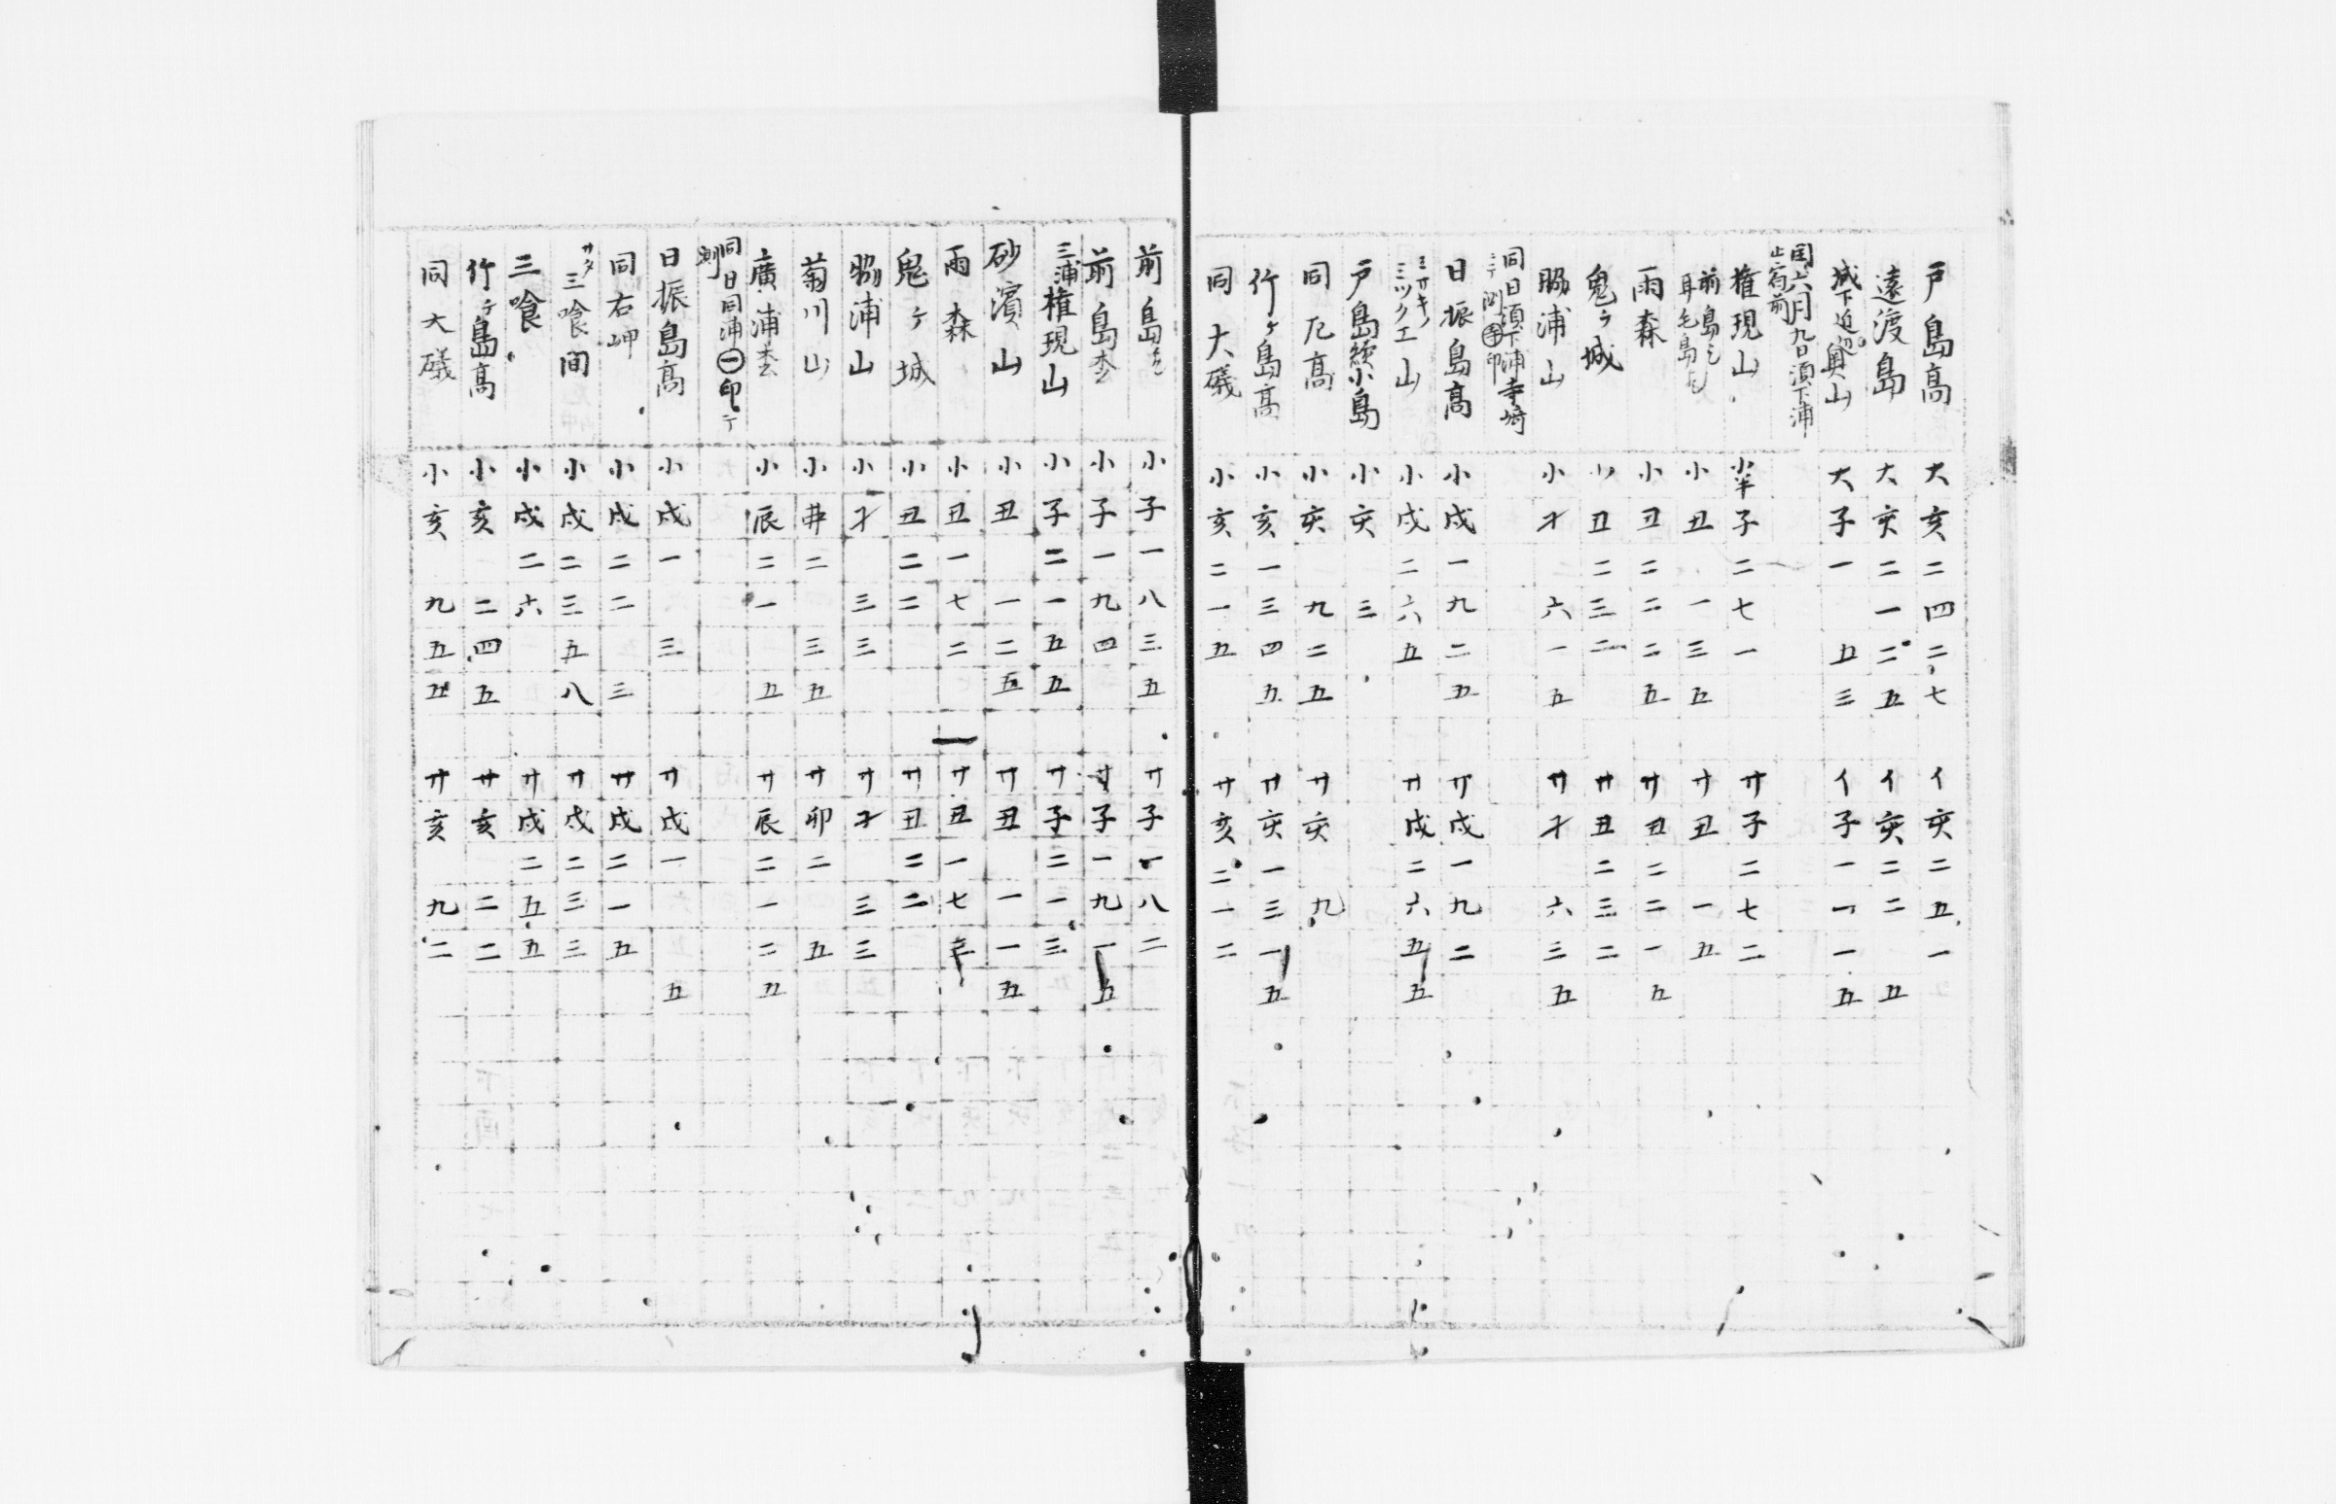 戸島高 大亥二四二七 イ亥二五一
遠渡島 大亥二一二五 イ亥二二 五
城下迫辺奥山 大子一 五三 イ子一一一五
閏六月九日須下浦
止宿前
権現山 小半子二七一 サ子二七二
前島ミ
耳毛島
小丑 一三五 サ丑 一五
雨森 小丑二二二五 サ丑二二一五
鬼ケ城 小丑二三二 サ丑二三二
脇浦山 小才 六一五 サ才 六三五
同日須下浦寺崎
ニテ測 印
日振島高 小戌一九二五 サ戌一九二
ミサキノ
ミツクエ山 小戌二六五 サ戌二六五五
戸島続小島 小亥 三
同尼高 小亥 九二五 サ亥 九
竹ケ島高 小亥一三四五 サ亥一三一五
同大礒 小亥二一五 サ亥二一二
前島 小子一八三五 サ子一八二
前島 小子一九四 サ子一九一五
三浦権現山 小子二一五五 サ子二一三
砂濱山 小丑 一二五 サ丑 一一五
雨森 小丑一七二 サ丑一七
鬼ケ城 小丑二二 サ丑二二
脇浦山 小才 三三 サ才 三三
菊川山 小丑二 三五 サ卯二 五
廣浦 小辰二一 五 サ辰二一二五
同日同浦㊀印ニテ
測
日振島高 小戌一 三 サ戌一 五
同右岬 小戌二二 三 サ戌二一五
サタ三喰間 小戌二三五八 サ戌二三三
三喰 小戌二六 サ戌二五五
竹ケ島高 小亥 二四五 サ亥 二二
同大礒 小亥 九五五 サ亥 九二